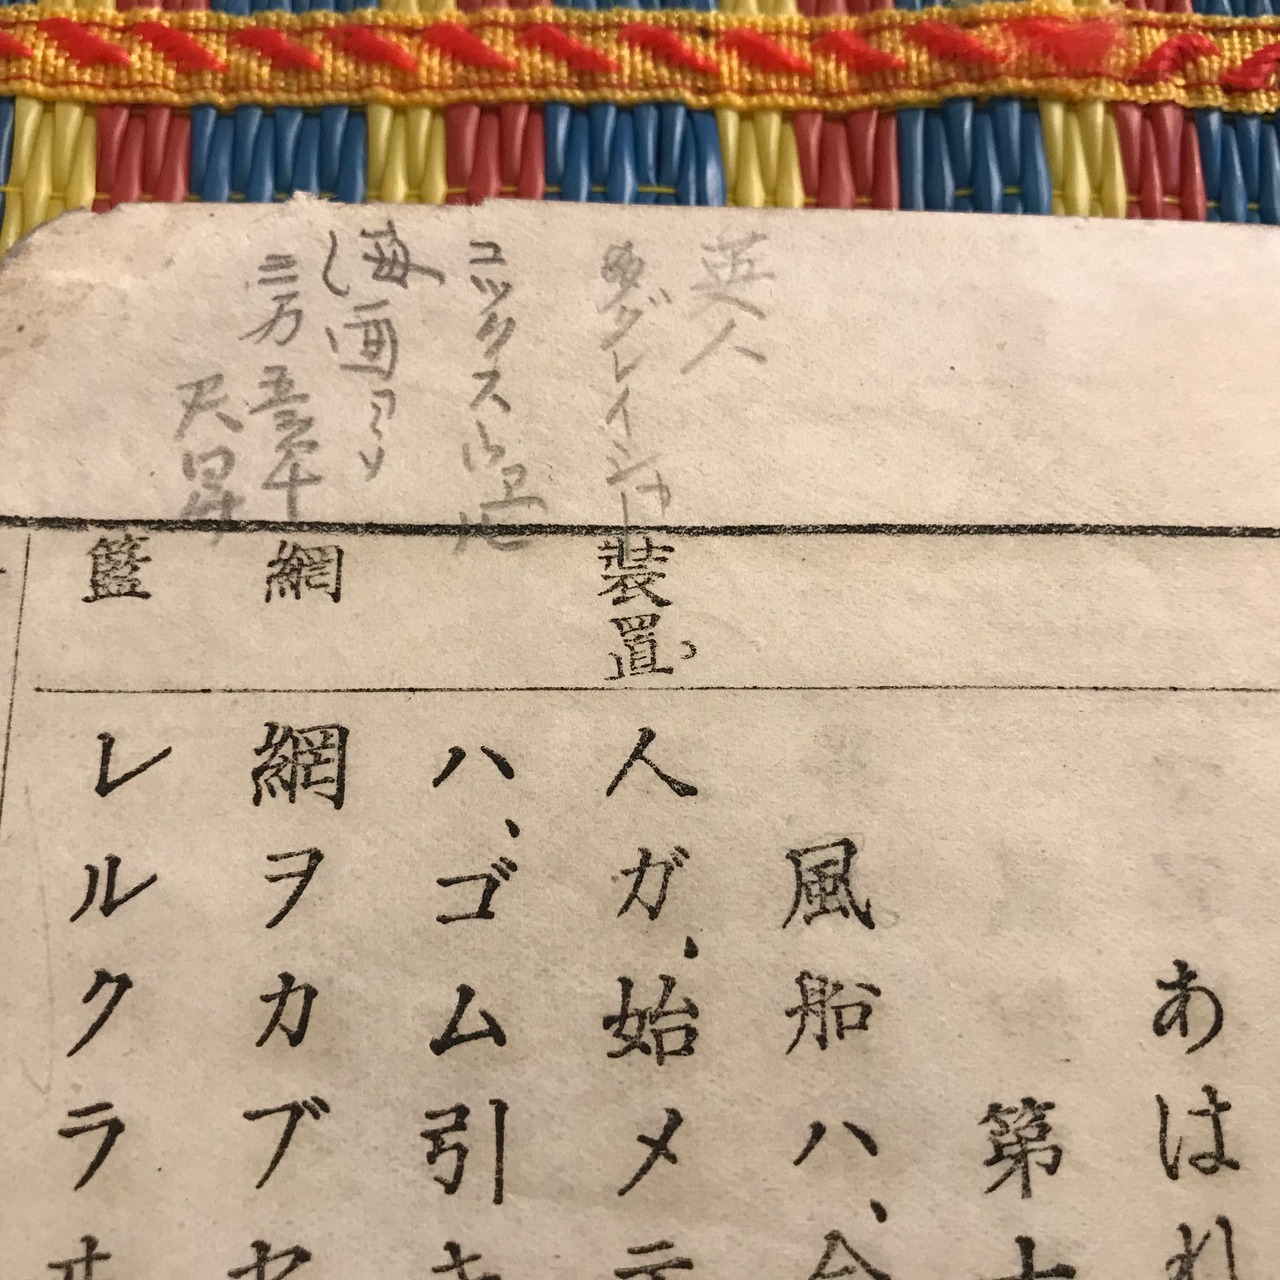 英人
グレイシャー
コックスル
海面ヨリ
三万五千
尺昇
装置
網
籃
あはれ
第十
風船ハ、今
人ガ、始メテ
ハ、ゴム引キ
網ヲカブセ
レルクラヰ